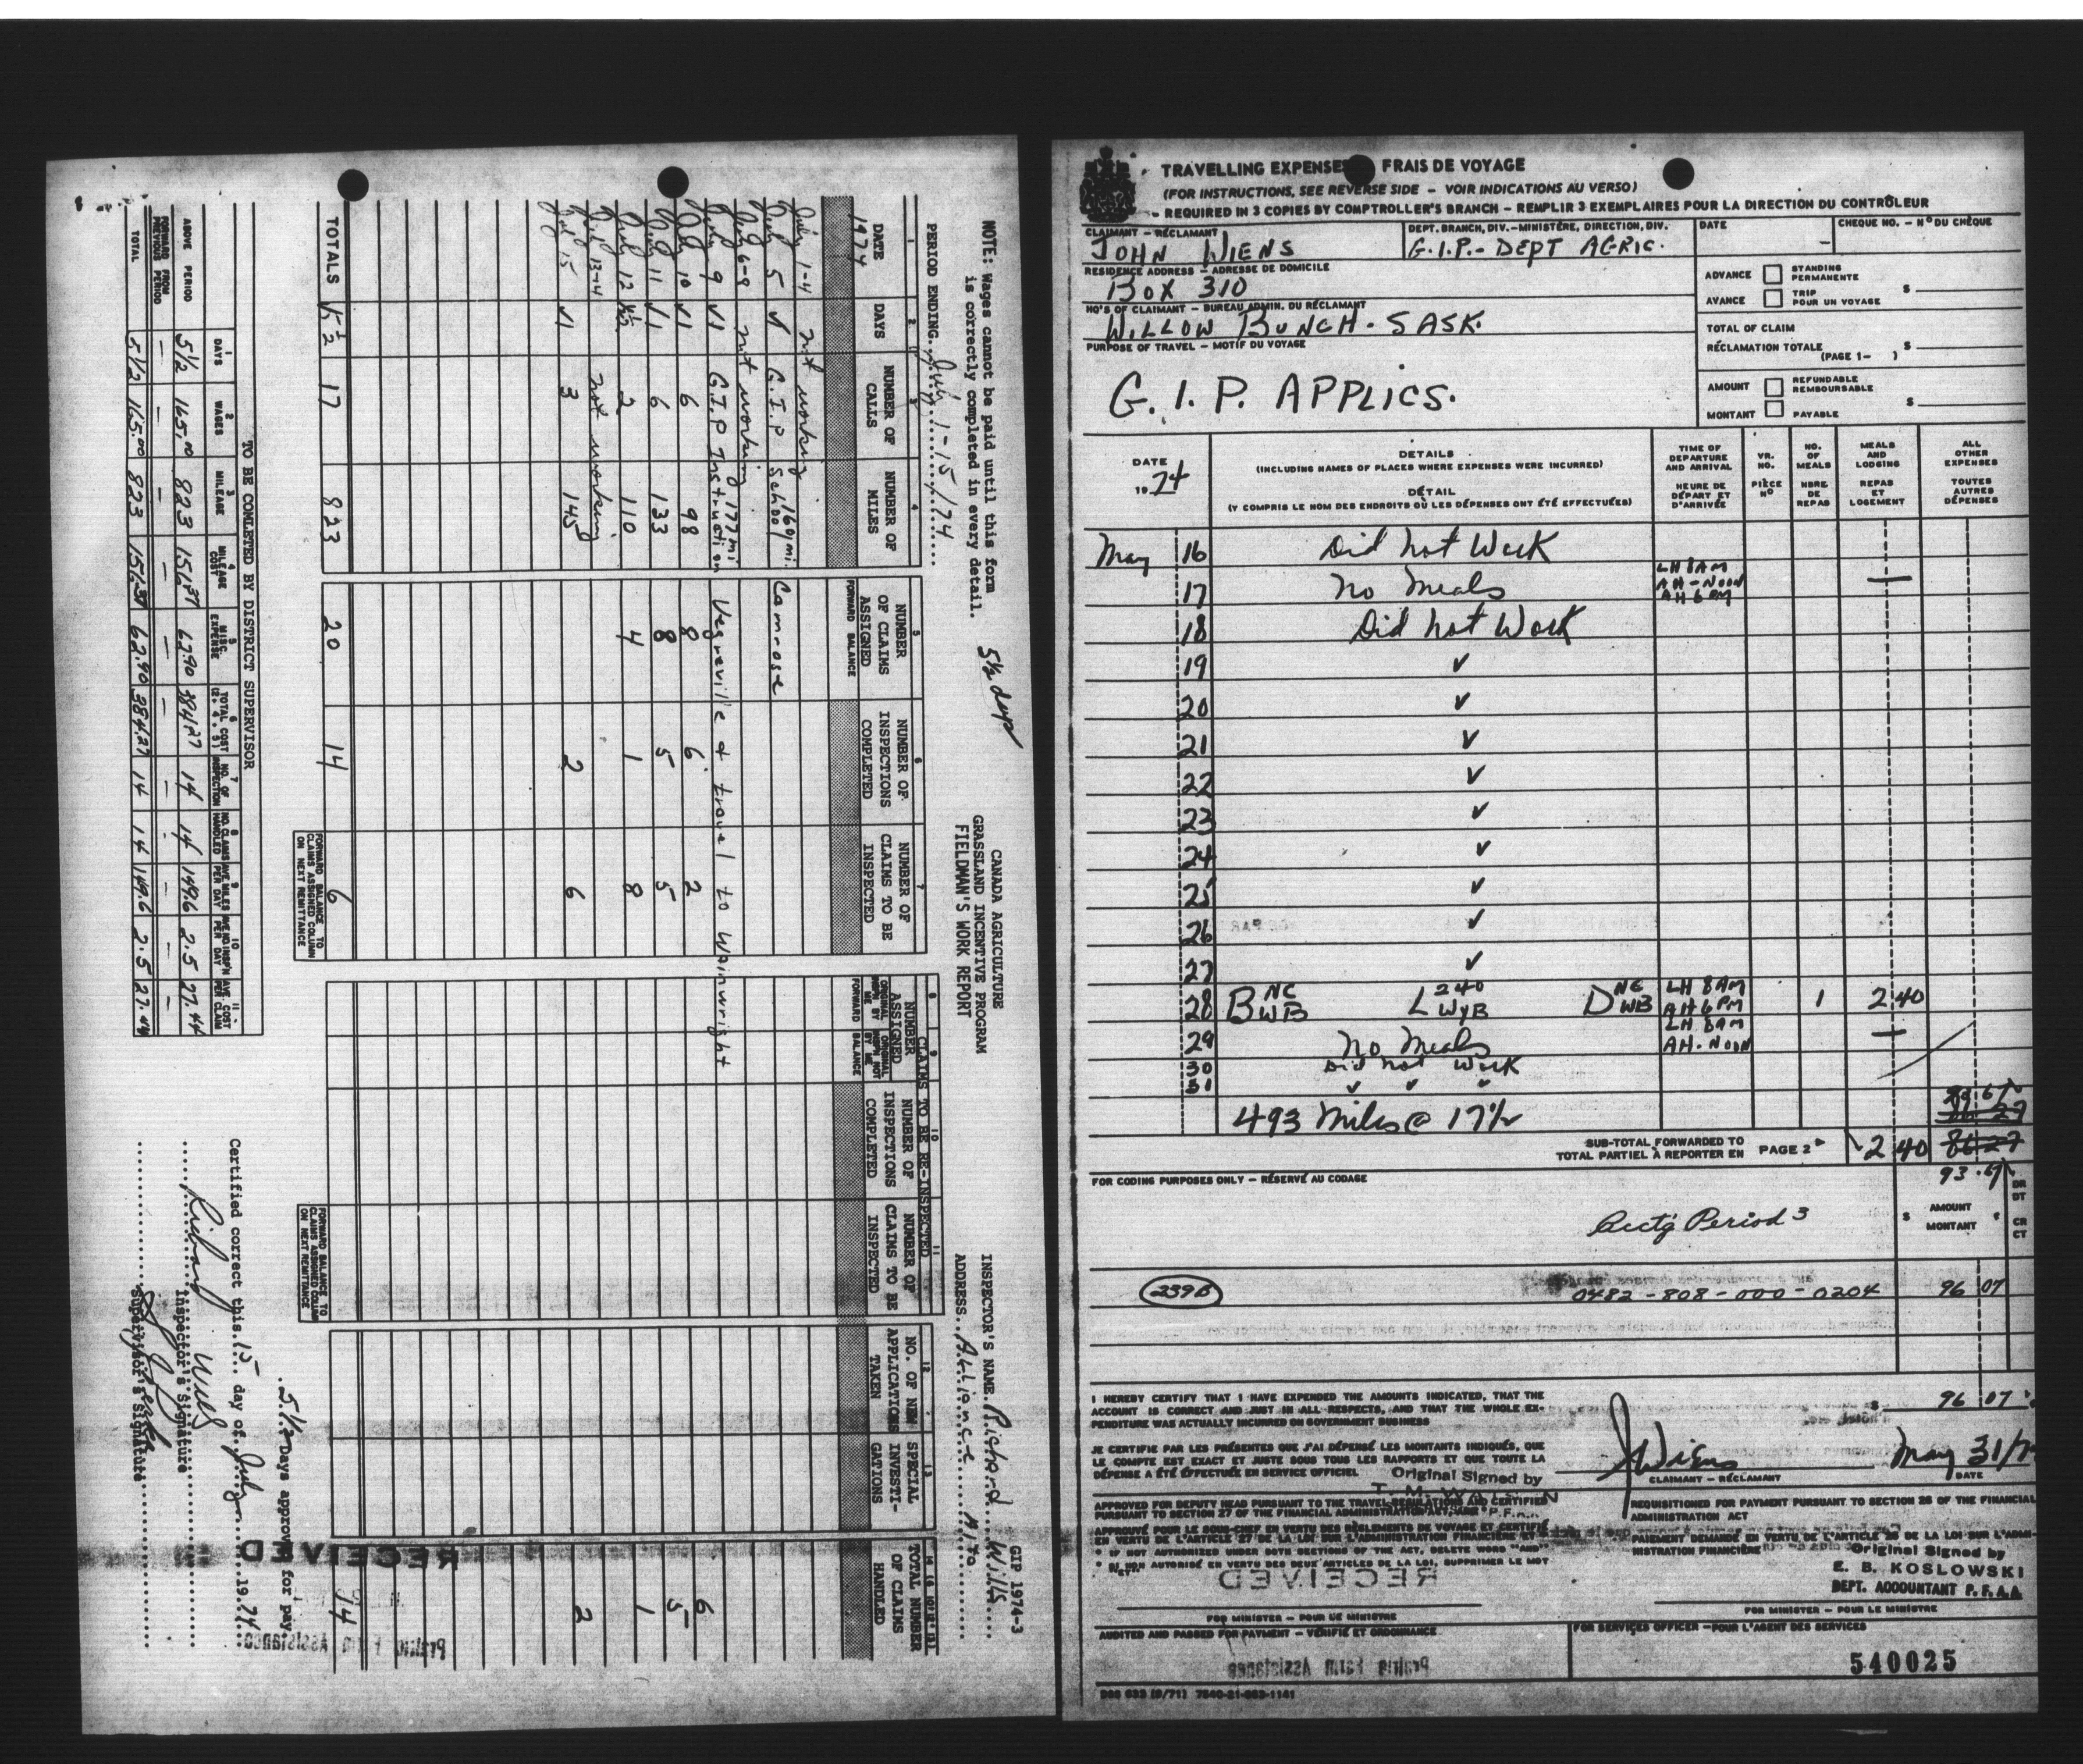 NOTE: Wages cannot be paid until this form
is correctly completed in every detail.
5½ days
CANADA AGRICULTURE
GRASSLAND INCENTIVE PROGRAM
FIELDMAN'S WORK REPORT
GIP 1974-3
INSPECTOR'S NAME Richard Wills
ADDRESS Alliance Alta
PERIOD ENDING July 1-15/74
1 DATE 1974
2 DAYS
3 NUMBER OF CALLS
4 NUMBER OF MILES
5 NUMBER OF CLAIMS ASSIGNED FORWARD BALANCE
6 NUMBER OF INSPECTIONS COMPLETED
7 NUMBER OF CLAIMS TO BE INSPECTED
CLAIMS TO BE RE-INSPECTED
8 9 NUMBER ASSIGNED
ORIGINAL INSPN BY ME ORIGINAL INSPN NOT BY ME
FORWARD BALANCE
10 NUMBER OF INSPECTIONS COMPLETED
11 NUMBER OF CLAIMS TO BE INSPECTED
12 NO. OF NEW APPLICATIONS TAKEN
13 SPECIAL INVESTI-GATIONS
14 TOTAL NUMBER OF CLAIMS HANDLED
July 1-4 not working
July 5 √1 G.I.P School 160 mi. Camrose
July 6-8 not working
July 9 √1 G.I.P Instruction 177 mi Vegreville & travel to Wainwright
July 10 √1 6 98 8 6 2 6
July 11 √1 6 133 8 5 5 5
July 12 √½ 2 110 4 1 8 1
July 13-4 not working
Jul 15 √1 3 145 2 6 2
TOTALS 5½ 17 823 20 14 6 14
FORWARD BALANCE TO CLAIMS ASSIGNED COLUMN ON NEXT REMITTANCE
FORWARD BALANCE TO CLAIMS ASSIGNED COLUMN ON NEXT REMITTANCE
5½ Days approved for pay
TO BE COMLETED BY DISTRICT SUPERVISOR
1 DAYS
2 WAGES
3 MILEAGE
4 MILEAGE COST
5 MISC. EXPENSE
6 TOTAL COST
7 NO. OF INSPECTION
8 NO. CLAIMS HANDLED
9 AVE MILES PER DAY
10 AVE NO INSP'N PER DAY
11 AVE. COST PER CLAIM
ABOVE PERIOD 5½ 165.00 823 156.37 62.90 384.27 14 14 149.6 2.5 27.44
FORWARD FROM PREVIOUS PERIOD — — — — — — — — — — —
TOTAL 5½ 165.00 823 156.37 62.90 384.27 14 14 149.6 2.5 27.44
Certified correct this 15 day of July 1974
Richard Wills
Inspector's Signature
Supervisor's Signature
RECEIVED
Prairie Farm Assistance
TRAVELLING EXPENSES FRAIS DE VOYAGE
(FOR INSTRUCTIONS, SEE REVERSE SIDE – VOIR INDICATIONS AU VERSO)
- REQUIRED IN 3 COPIES BY COMPTROLLER'S BRANCH – REMPLIR 3 EXEMPLAIRES POUR LA DIRECTION DU CONTRÔLEUR
CLAIMANT – RÉCLAMANT
JOHN WIENS
DEPT. BRANCH, DIV.–MINISTÈRE, DIRECTION, DIV.
G.I.P.- DEPT AGRIC.
DATE
CHEQUE NO. – N° DU CHÈQUE
RESIDENCE ADDRESS – ADRESSE DE DOMICILE
BOX 310
HQ'S OF CLAIMANT – BUREAU ADMIN. DU RÉCLAMANT
WILLOW BUNCH. SASK.
PURPOSE OF TRAVEL – MOTIF DU VOYAGE
G. I. P. APPLICS.
ADVANCE STANDING PERMANENTE
AVANCE TRIP POUR UN VOYAGE $
TOTAL OF CLAIM
RÉCLAMATION TOTALE (PAGE 1– ) $
AMOUNT REFUNDABLE REMBOURSABLE
MONTANT PAYABLE $
DATE 1974
DETAILS
(INCLUDING NAMES OF PLACES WHERE EXPENSES WERE INCURRED)
DÉTAIL
(Y COMPRIS LE NOM DES ENDROITS OÙ LES DÉPENSES ONT ÉTÉ EFFECTUÉES)
TIME OF DEPARTURE AND ARRIVAL HEURE DE DÉPART ET D'ARRIVÉE
VR. NO. PIÈCE N°
NO. OF MEALS NBRE DE REPAS
MEALS AND LODGING REPAS ET LOGEMENT
ALL OTHER EXPENSES TOUTES AUTRES DÉPENSES
May 16 Did not Work
17 No Meals LH 8AM AH-NOON AH 6PM —
18 Did not Work
19 ✓
20 ✓
21 ✓
22 ✓
23 ✓
24 ✓
25 ✓
26 ✓
27 ✓
28 B NC WB L 240 WyB D NC WB LH 8AM AH 6PM 1 2.40
29 No Meals LH 8AM AH-NOON —
30 Did not Work
31 ✓ ✓ ✓
493 Miles @ 17½
SUB-TOTAL FORWARDED TO
TOTAL PARTIEL À REPORTER EN PAGE 2 2.40 86.27
93.67
FOR CODING PURPOSES ONLY – RÉSERVÉ AU CODAGE
AMOUNT MONTANT $ ¢
DR DT CR CT
Acctg Period 3
239B 0482-808-000-0204 96 07
I HEREBY CERTIFY THAT I HAVE EXPENDED THE AMOUNTS INDICATED, THAT THE
ACCOUNT IS CORRECT AND JUST IN ALL RESPECTS, AND THAT THE WHOLE EX-
PENDITURE WAS ACTUALLY INCURRED ON GOVERNMENT BUSINESS
$ 96 07
JE CERTIFIE PAR LES PRÉSENTES QUE J'AI DÉPENSÉ LES MONTANTS INDIQUÉS, QUE
LE COMPTE EST EXACT ET JUSTE SOUS TOUS LES RAPPORTS ET QUE TOUTE LA
DÉPENSE A ÉTÉ EFFECTUÉE EN SERVICE OFFICIEL
JWiens May 31/7
CLAIMANT – RÉCLAMANT DATE
Original Signed by
APPROVED FOR DEPUTY HEAD PURSUANT TO THE TRAVEL REGULATIONS AND CERTIFIED
PURSUANT TO SECTION 27 OF THE FINANCIAL ADMINISTRATION ACT
APPROUVÉ POUR LE SOUS-CHEF EN VERTU DES RÈGLEMENTS DE VOYAGE ET CERTIFIÉ
EN VERTU DE L'ARTICLE 27 DE LA LOI SUR L'ADMINISTRATION FINANCIÈRE
* IF NOT AUTHORIZED UNDER BOTH SECTIONS OF THE ACT, DELETE WORD "AND"
* SI NON AUTORISÉ EN VERTU DES DEUX ARTICLES DE LA LOI, SUPPRIMER LE MOT "ET"
REQUISITIONED FOR PAYMENT PURSUANT TO SECTION 26 OF THE FINANCIAL
ADMINISTRATION ACT
PAIEMENT DEMANDÉ EN VERTU DE L'ARTICLE 26 DE LA LOI SUR L'ADMI-
NISTRATION FINANCIÈRE
Original Signed by
E. B. KOSLOWSKI
DEPT. ACCOUNTANT P.F.A.A.
RECEIVED
FOR MINISTER – POUR LE MINISTRE
FOR MINISTER – POUR LE MINISTRE
AUDITED AND PASSED FOR PAYMENT – VÉRIFIÉ ET ORDONNANCÉ
FOR SERVICES OFFICER –POUR L'AGENT DES SERVICES
Prairie Farm Assistance
540025
DSS 633 (9/71) 7540-21-883-1141